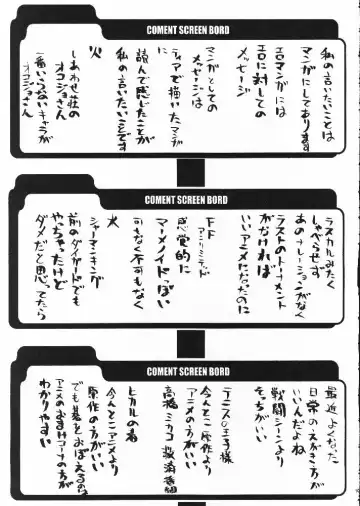 COMENT SCREEN BORD
私の言いたいことは
マンガにしてあります
エロマンガには
エロに対しての
メッセージ
マンガとしての
メッセージは
ティアで描いたマンガ
に
読んで感じたことが
私の言いたいことです
火
しあわせ荘の
オコジョさん
一番いらないキャラが
オコジョさん
COMENT SCREEN BORD
ラスカルみたく
しゃべらせず
あのナレーションがなく
ラストのトーナメント
がなければ
いいアニメになったのに
FF
アンリミテッド
感覚的に
マーメノイドぽい
可もなく不可もなく
水
シャーマンキング
前のダイガードでも
やっちゃったけど
ダメだと思ってたら
COMENT SCREEN BORD
最近よくなった
日常のえがき方が
いいんだよね
戦闘シーンより
そっちがいい
テニスの王子様
今んとこ原作より
アニメの方がいい
高橋ミカコ救済番組
ヒカルの碁
今んとこアニメより
原作の方がいい
でも碁をおぼえるのは
アニメのおまけコーナの方が
わかりやすい